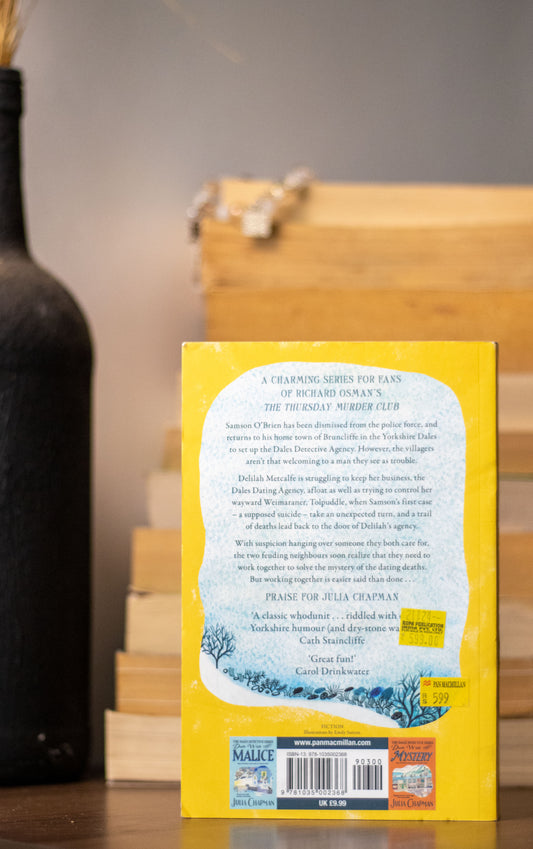 A CHARMING SERIES FOR FANS
OF RICHARD OSMAN'S
THE THURSDAY MURDER CLUB
Samson O'Brien has been dismissed from the police force, and
returns to his home town of Bruncliffe in the Yorkshire Dales
to set up the Dales Detective Agency. However, the villagers
aren't that welcoming to a man they see as trouble.
Delilah Metcalfe is struggling to keep her business, the
Dales Dating Agency, afloat as well as trying to control her
wayward Weimaraner, Tolpuddle, when Samson's first case
– a supposed suicide – take an unexpected turn, and a trail
of deaths lead back to the door of Delilah's agency.
With suspicion hanging over someone they both care for,
the two feuding neighbours soon realize that they need to
work together to solve the mystery of the dating deaths.
But working together is easier said than done . . .
PRAISE FOR JULIA CHAPMAN
'A classic whodunit . . . riddled with
Yorkshire humour (and dry-stone wa
Cath Staincliffe
'Great fun!'
Carol Drinkwater
599.00
PAN MACMILLAN
599
FICTION
Illustrations by Emily Sutton
www.panmacmillan.com
ISBN-13: 978-1035002368
90300
9 781035 002368
UK £9.99
Date With
MALICE
JULIA CHAPMAN
Date With
MYSTERY
JULIA CHAPMAN